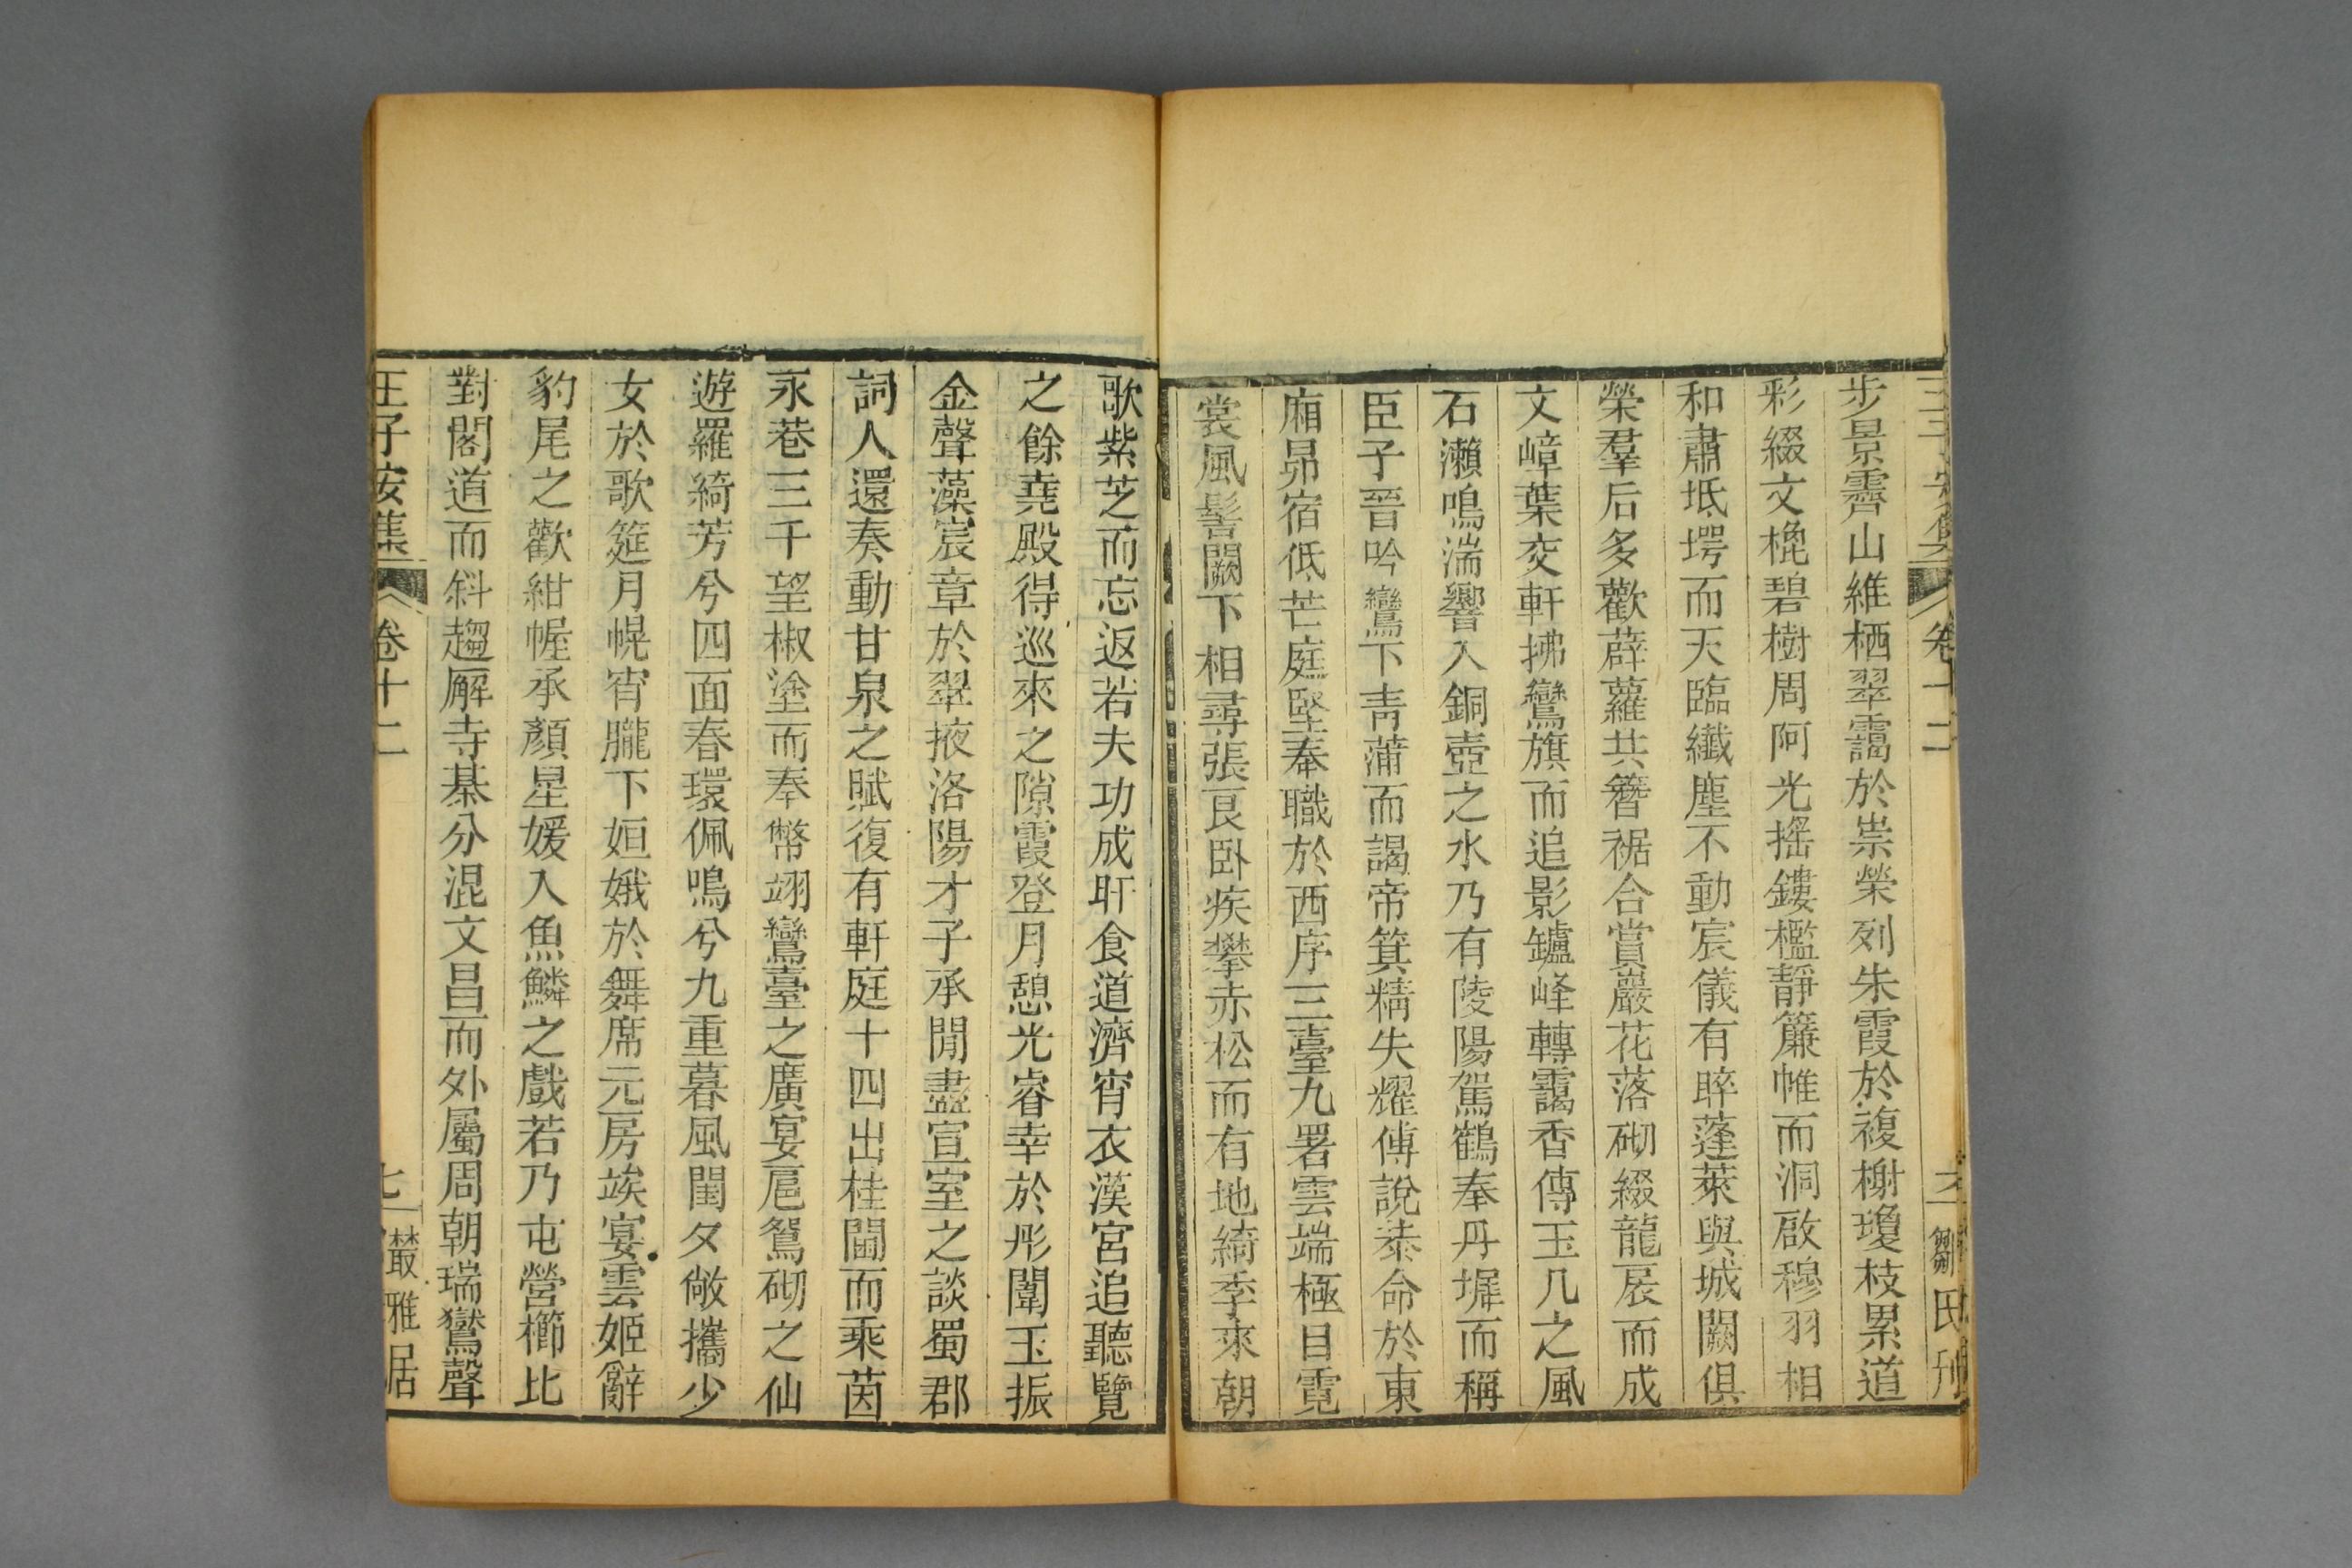 王子安集 卷十二 六 鄒氏刊
步景霽山維栖翠靄於祟榮列朱霞於複榭瓊枝累道
彩綴文㮰碧樹周阿光搖鏤檻靜簾帷而洞啟穆羽相
和肅坻堮而天臨纖塵不動宸儀有睟蓬萊與城闕俱
榮羣后多歡薜蘿共簪裾合賞巖花落砌綴龍扆而成
文嶂葉交軒拂鸞旗而追影鑪峰轉靄香傳玉几之風
石瀨鳴湍響入銅壺之水乃有陵陽駕鶴奉丹墀而稱
臣子晉吟鸞下靑蒲而謁帝箕精失耀傅說恭命於東
廂昴宿低芒庭堅奉職於西序三臺九署雲端極目霓
裳風髻闕下相尋張良卧疾攀赤松而有地綺季來朝
歌紫芝而忘返若夫功成旰食道濟宵衣漢宮追聽覽
之餘堯殿得巡來之隙霞登月憩光睿幸於彤闈玉振
金聲藻宸章於翠掖洛陽才子承閒盡宣室之談蜀郡
詞人還奏動甘泉之賦復有軒庭十四出桂閫而乘茵
永巷三千望椒塗而奉幣翊鸞臺之廣宴扈鴛砌之仙
遊羅綺芳兮四面春環佩鳴兮九重暮風閨夕敞攜少
女於歌筵月幌宵朧下姮娥於舞席元房竢宴雲姬辭
豹尾之歡紺幄承顏星媛入魚鱗之戲若乃屯營櫛比
對閣道而斜趨廨寺綦分混文昌而外屬周朝瑞鸑聲
王子安集 卷十二 七 叢雅居